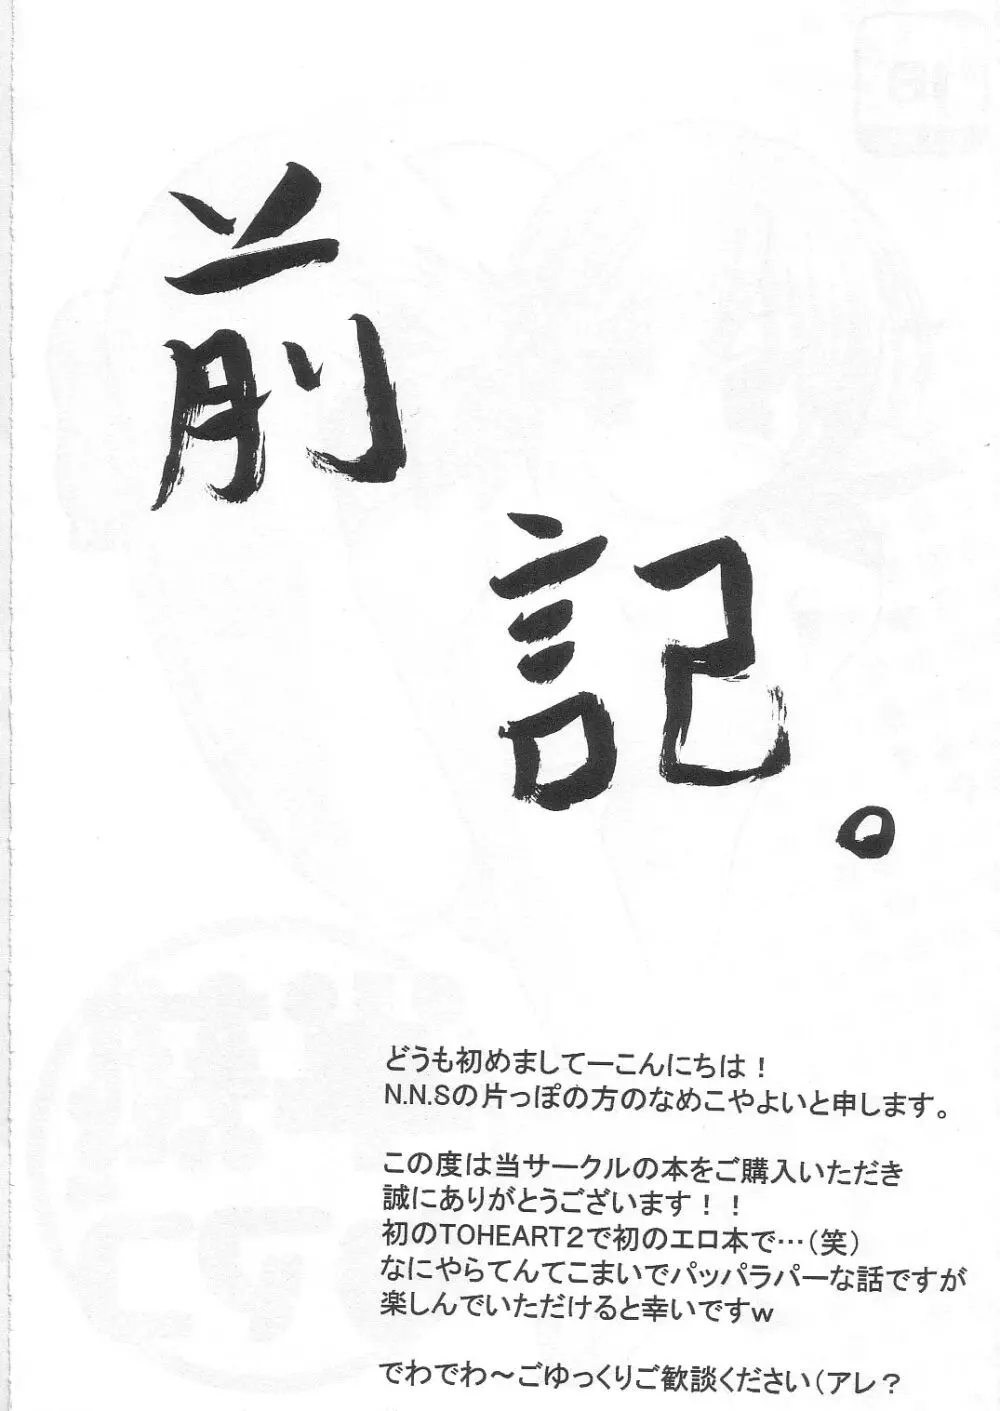 前
記。
どうも初めましてーこんにちは！
N.N.Sの片っぽの方のなめこやよいと申します。
この度は当サークルの本をご購入いただき
誠にありがとうございます！！
初のTOHEART2で初のエロ本で…（笑）
なにやらてんてこまいでパッパラパーな話ですが
楽しんでいただけると幸いですｗ
でわでわ～ごゆっくりご歓談ください（アレ？